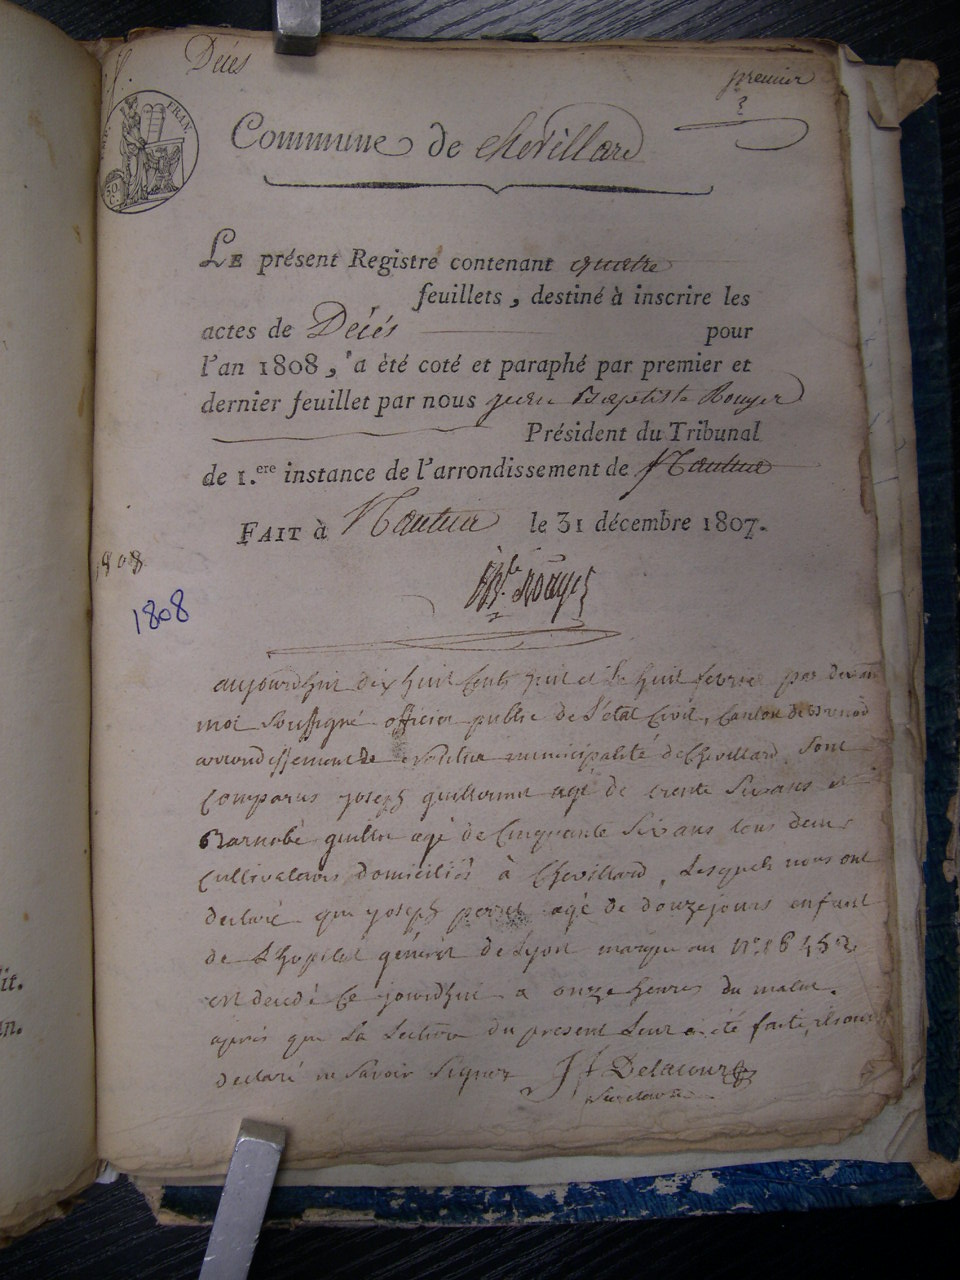 Décès
premier
EMP. FRAN
50
C.
Commune de chevillard
LE présent Registre contenant quatre
feuillets, destiné à inscrire les
actes de Décés pour
l'an 1808, a été coté et paraphé par premier et
dernier feuillet par nous jean Baptiste Rouyer
Président du Tribunal
de 1.ere instance de l'arrondissement de Nantua
FAIT à Nantua le 31 décembre 1807.
Bte Rouyer
1808
1808
aujourdhui dix huit Cents huit et le huit fevrier par devan
moi soussigné officier public de l'état Civil, Canton de Brenod
arrondissement de Nantua municipalité de Chevillard, sont
Comparus joseph guillermin agé de trente six ans et
Barnabé guillin agé de Cinquante six ans tous deux
Cultivateurs domiciliés à Chevillard, Lesquels nous ont
declaré que joseph agé de douze jours enfant
de Lhopital général de Lyon marque au n°.
est decedé Ce jourdhui a onze heures du matin.
après que La Lecture du present Leur a été faite, ils ont
declaré ne savoir signer Delacour
Secretaire
it.
n.